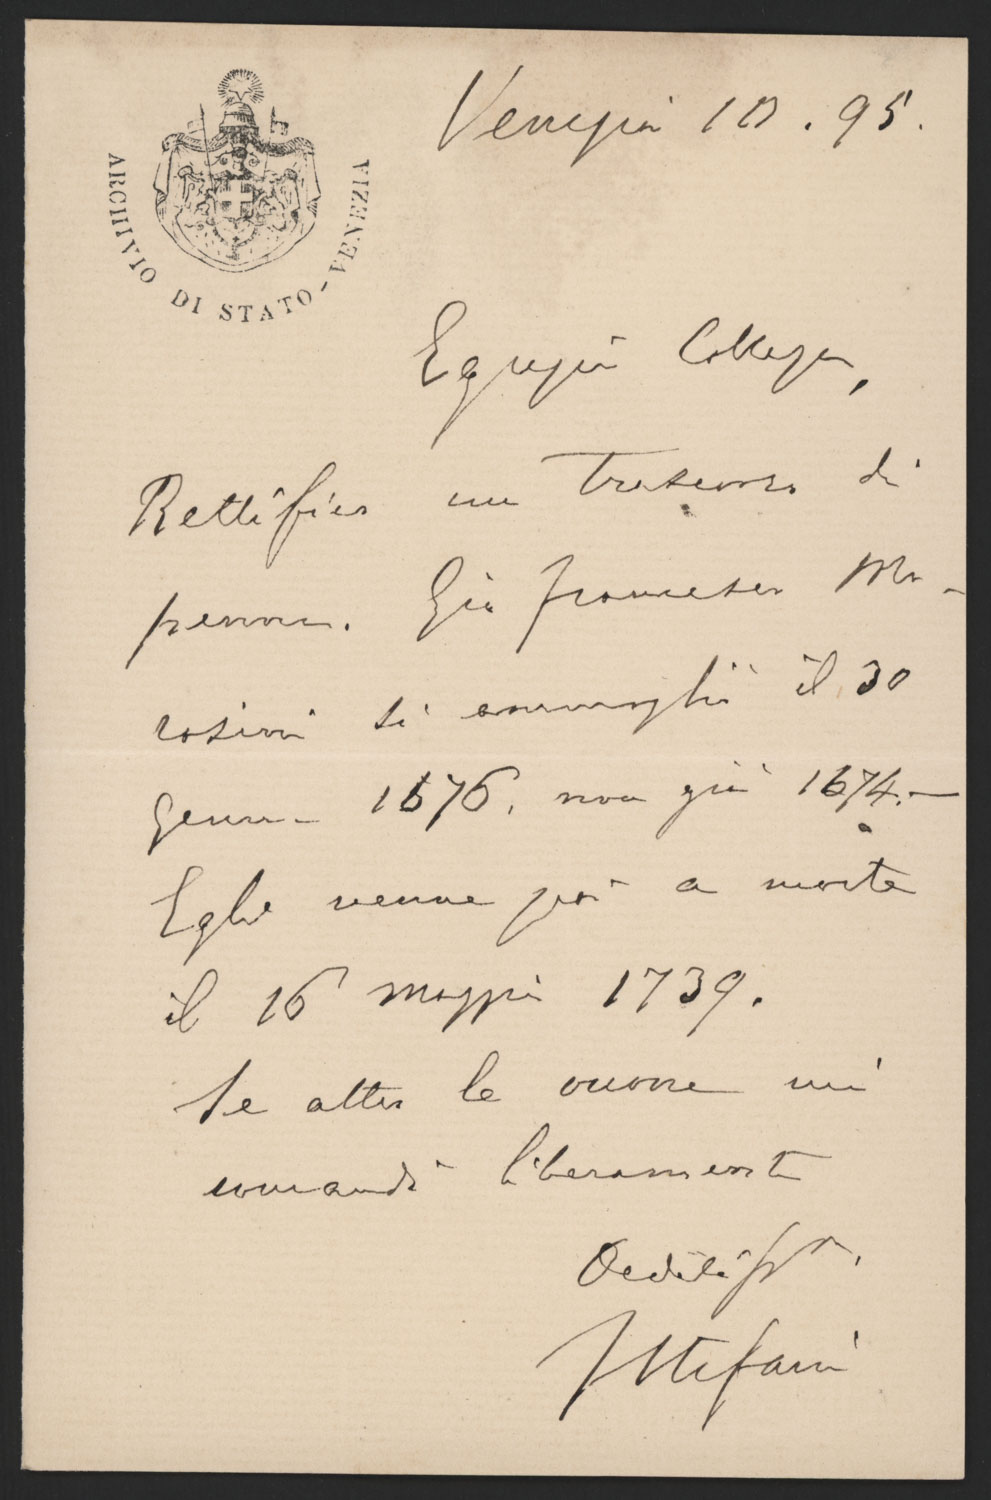 ARCHIVIO DI STATO - VENEZIA
Venezia 10 . 95.
Egregio Collega,
Rettifico un trascorso di
penna. Gio Francesco Mo-
rosini si ammogliò il 30
genn. 1676. non già 1674.—
Egli venne poi a morte
il 16 maggio 1739.
Se altro le occorre mi
comandi liberamente
FStefani